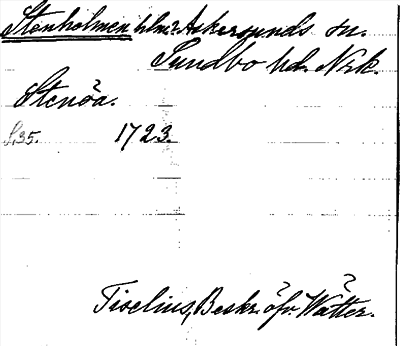 Stenholmen hlm? Askersunds sn.
Sundbo hd. Nrk.
Stenöa.
S.35. 1723.
Tiselius, Beskr. öfv. Wätter.